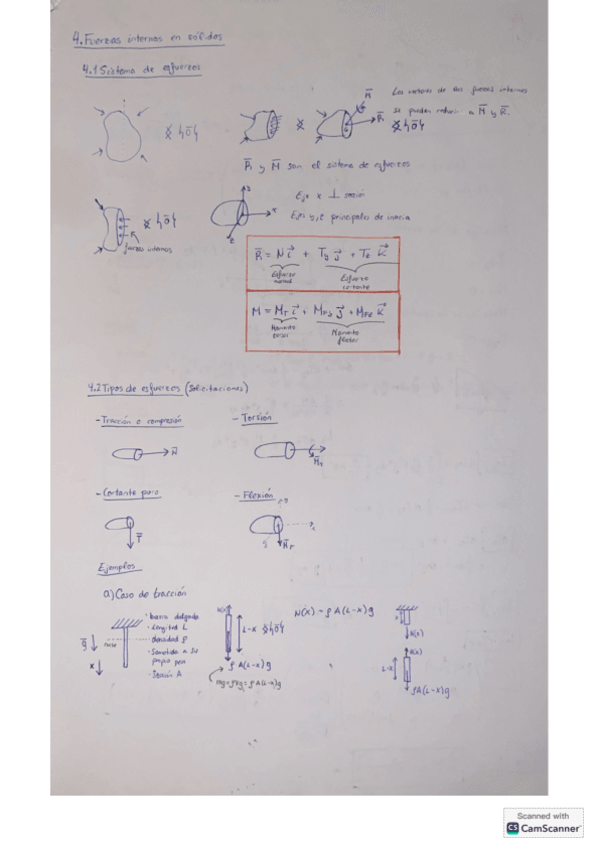 4. Fuerzas internas en sólidos
4.1 Sistema de esfuerzos
Los vectores de las fuerzas internas
se pueden reducir a M y R.
R y M son el sistema de esfuerzos
fuerzas internas
Eje x ⊥ sección
Ejes y, z principales de inercia
R = N i + Ty j + Tz k
Esfuerzo normal
Esfuerzo cortante
M = MT i + MFy j + MFz k
Momento torsor
Momento flector
4.2 Tipos de esfuerzos (Solicitaciones)
- Tracción o compresión
- Torsión
N
MT
- Cortante puro
- Flexión
T
Ejemplos
a) Caso de tracción
g
x
· barra delgada
· Longitud L
· densidad ρ
· Sometida a su
propio peso
· Sección A
N(x)
L-x
ρ A(L-x)g
mg = ρVg = ρ A(L-x)g
N(x) = ρ A(L-x)g
x
N(x)
N(x)
L-x
ρA(L-x)g
Scanned with
CS CamScanner